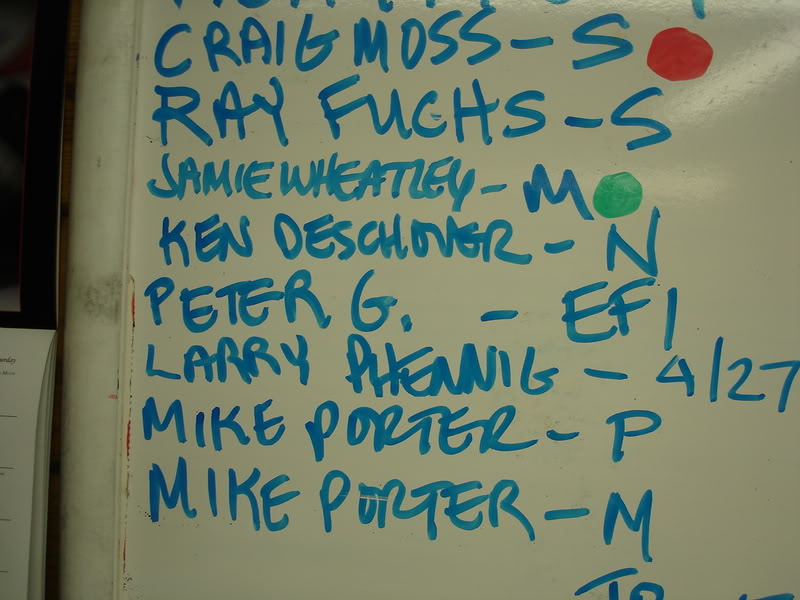 CRAIG MOSS - S
RAY FUCHS - S
JAMIE WHEATLEY - M
KEN DESCHOVER - N
PETER G. - EFI
LARRY PHENNIG - 4/27
MIKE PORTER - P
MIKE PORTER - M